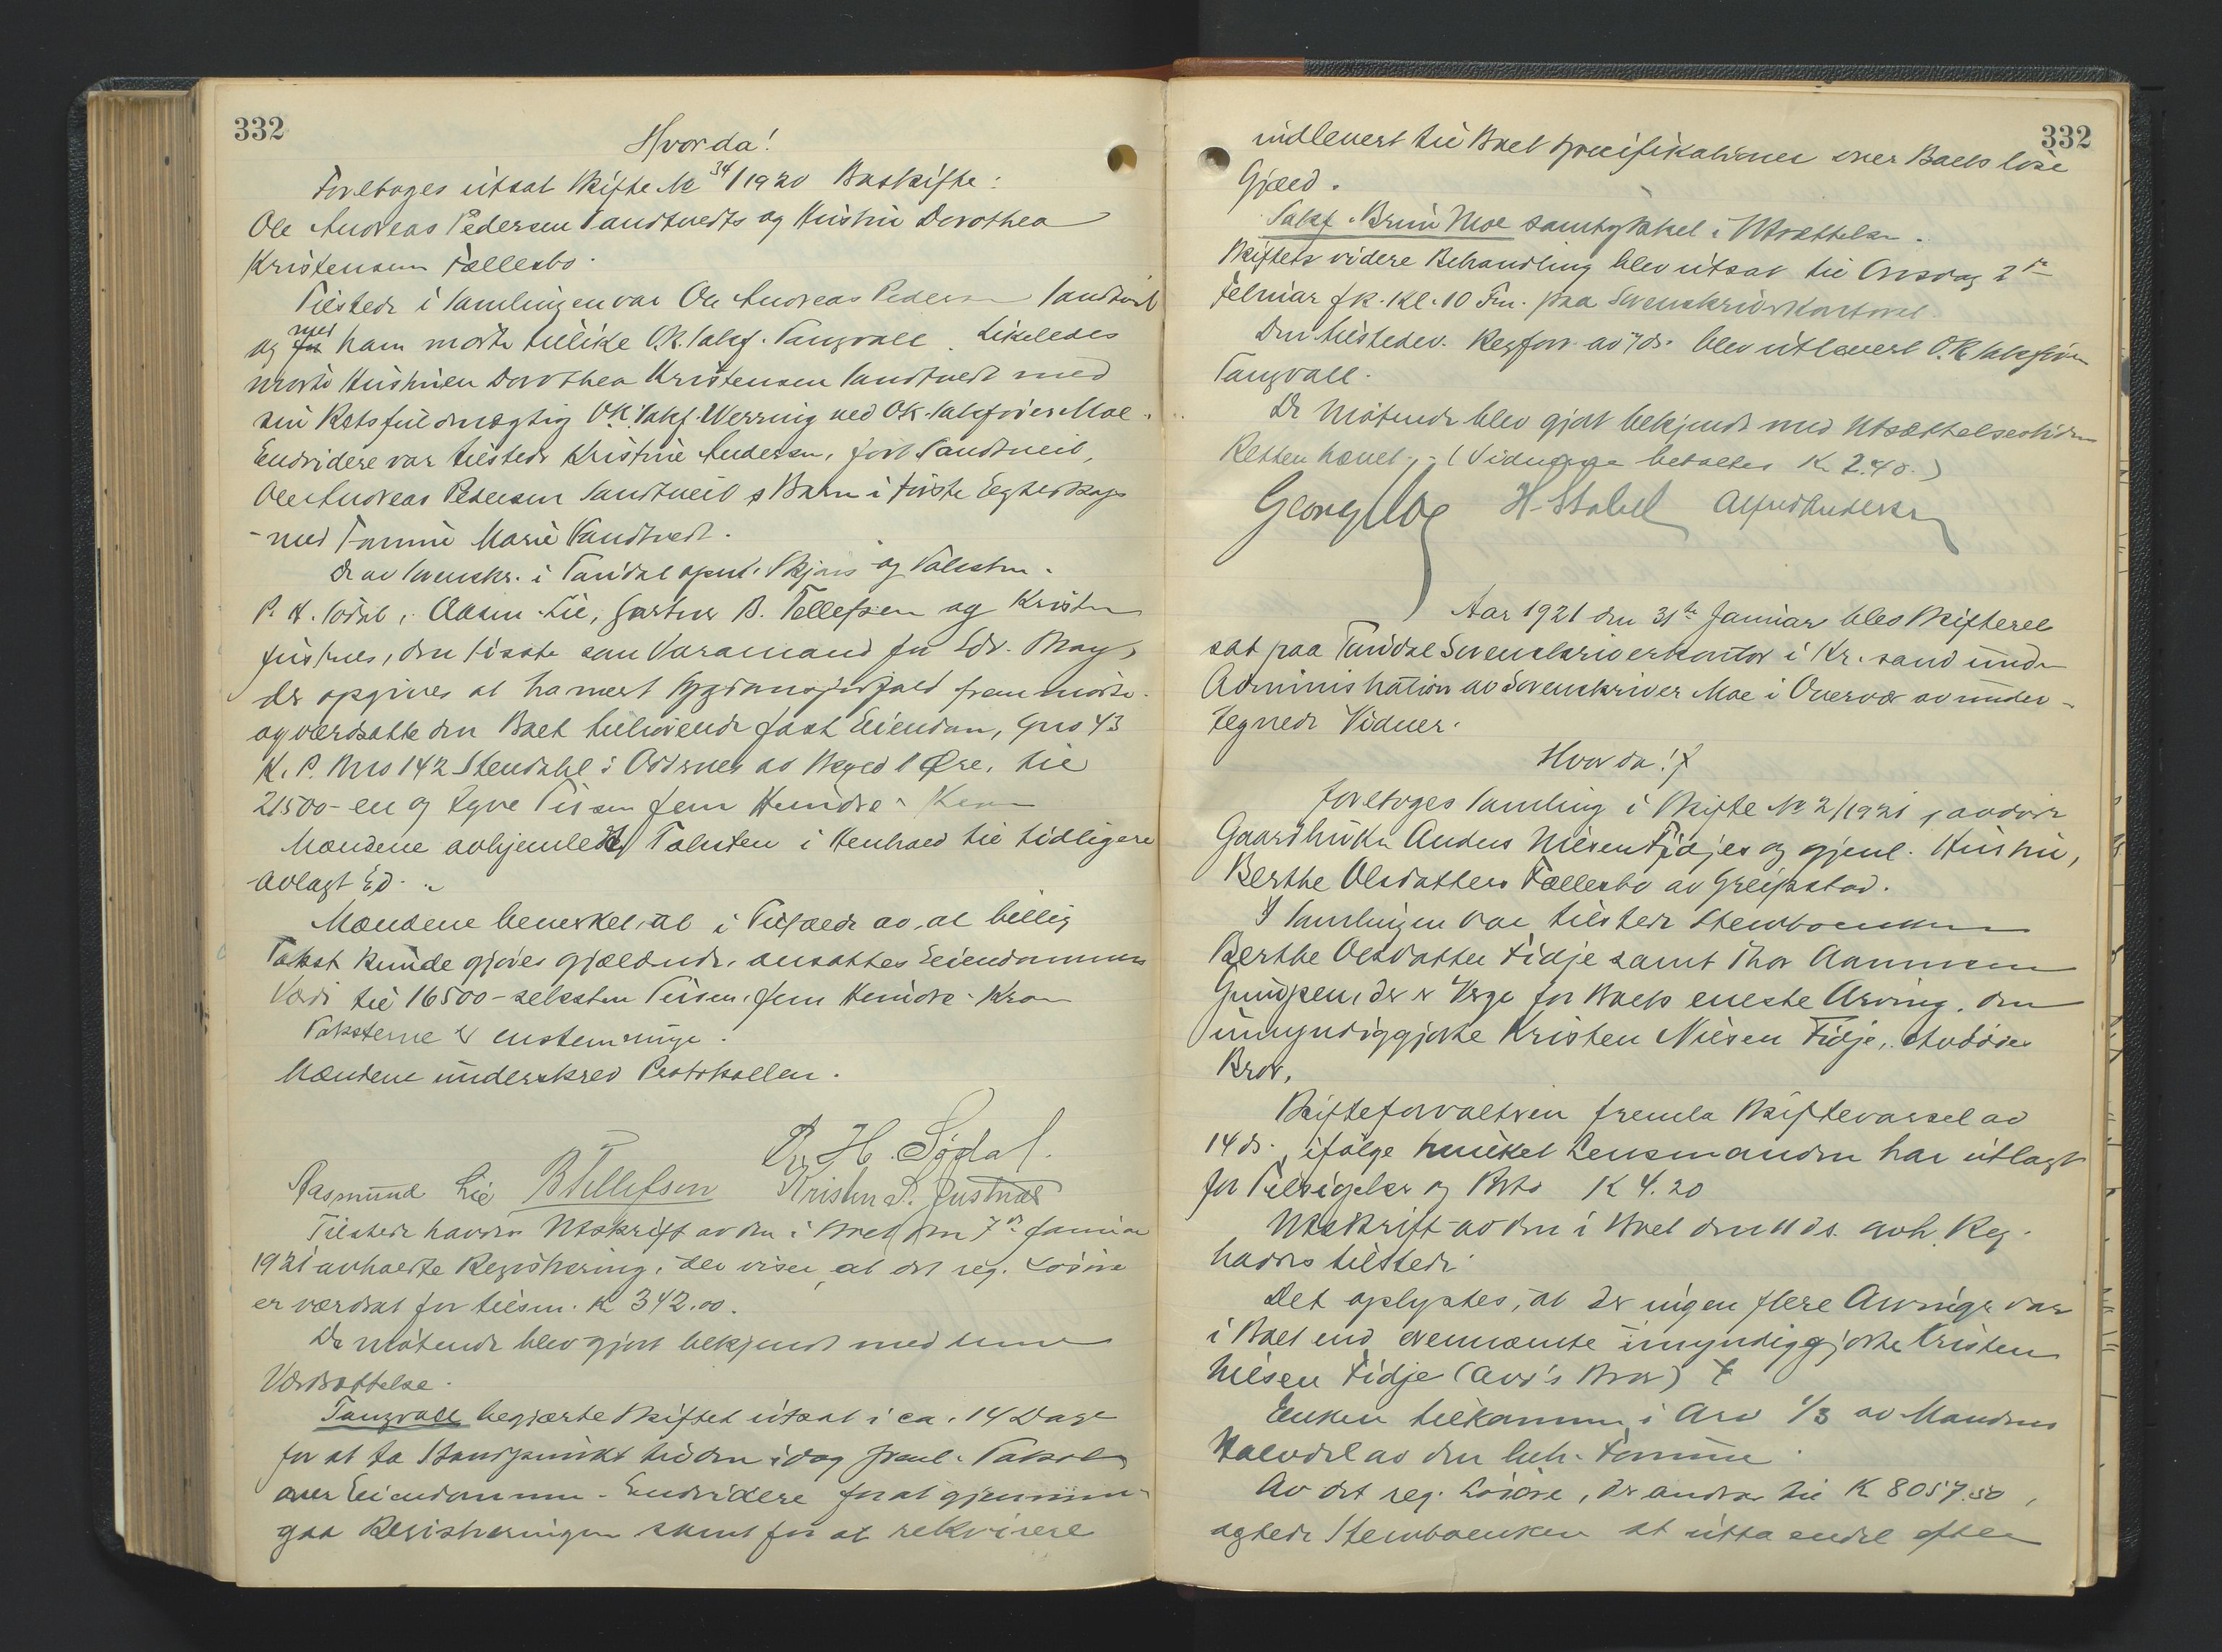 332
Hvorda!
Foretoges utsat Skifte No 34/1920 Boskifte:
Ole Andreas Pedersen Sandtvedts og Hustru Dorothea
Kristensens Fællesbo.
Tilstede i Samlingen var Ole Andreas Pedersen Sandtveit
og med ham mødte tillike O.R. Sakf. Tangvall. Likeledes
mødte Hustruen Dorothea Kristensen Sandtvedt med
sin Retsfuldmægtig O.R. Sakf. Werring ved O.R. Sakfører Moe.
Endvidere var tilstede Kristine Andersen, født Sandtveit,
Ole Andreas Pedersen Sandtveit s Barn i første Egteskap
- med Tomine Marie Sandtvedt.
De av Sorenskr. i Torridal opnt. Skjøns og Takstm.
P. H. Sødal, Aasm. Lie, Gartner B. Tellefsen og Kristen
Justnes, den sidste som Varamand for
der opgives at ha meldt Sygdomsforfald fremmøtte.
og værdsatte den Boet tilhørende faste Eiendom, Gno 43
K. P. Bno 142 Stendahl i Oddernes av Skyld 1 Øre, til
21500 - en og tyve Tusen fem Hundre - Kroner
Mændene avhjemlet Taksten i Henhold til tidligere
avlagt Ed. -
Mændene bemerket, at i Tilfælde av, at billig
Takst kunde gjøres gjældende, ansattes Eiendommens
Værdi til 16500 - seksten Tusen, fem Hundre - Kroner
Taksterne er enstemmige.
Mændene underskrev Protokollen.
P. H. Sødal.
Aasmund Lie B Tellefsen Kristen S. Justnæs
Tilstede havdes Utskrift av den i Boet den 7de Januar
1921 avholdte Registrering, der viser, at det reg. Løsøre
er værdsat for tilsm. Kr 342.00.
De møtende blev gjort bekjendt med denne
Værdsættelse.
Tangvall begjærte Skiftet utsat i ca. 14 Dage
for at ta Standpunkt til den idag freml. Takst
over Eiendommen - Endvidere for at gjennem-
gaa Registreringen samt for at rekvirere
332
indlevert til Boet Specifikationer over Boets løse
Gjæld.
Sakf. Bruu Moe samtykket i Utsættelsen.
Skiftets videre Behandling blev utsat til Onsdag 2de
Februar f k. Kl. 10 Fm. paa Sorenskriverkontoret.
Den tilstedev. Regforr. av 7/ds. blev utlevert O.R. Sakfører
Tangvall.
De møtende blev gjort bekjendt med Utsættelsestiden
Retten hævet. - (Vidnerne betaltes Kr 2.40.)
Georg Moe H. Stabel Alfred Andersen
Aar 1921 den 31te Januar blev Skifteret
sat paa Torridal Sorenskriverkontor i Kr.sand under
Administration av Sorenskriver Moe i Overvær av under-
tegnede Vidner.
Hvorda!
foretoges Samling i Skifte No 2/1921, avdøde
Gaardbruker Anders Nilsen Fidjes og gjenl. Hustru,
Berthe Olsdatters Fællesbo av Greipstad.
I Samlingen var tilstede Stervboenken
Berthe Olsdatter Fidje samt Thor Aanensen
der er Verge for Boets eneste Arving, den
umyndiggjorte Kristen Nilsen Fidje, Avdødes
Bror.
Skifteforvalteren fremla Skiftevarsel av
14 ds. ifølge hvilket Lensmanden har utlagt
for Tilsigelse og Porto K 4.20
Utskrift av den i Boet den 11 ds. avh. Reg.
havdes tilstede.
Det oplystes, at der ingen flere Arvinger var
i Boet end ovennævnte umyndiggjorte Kristen
Nilsen Fidje (Avd's Bror)
Enken tilkommer i Arv 1/3 av Mandens
Halvdel av den beh. Formue.
Av det reg. Løsøre, der andrar til K 8057.50,
agtede Stervboenken at utta endel efter